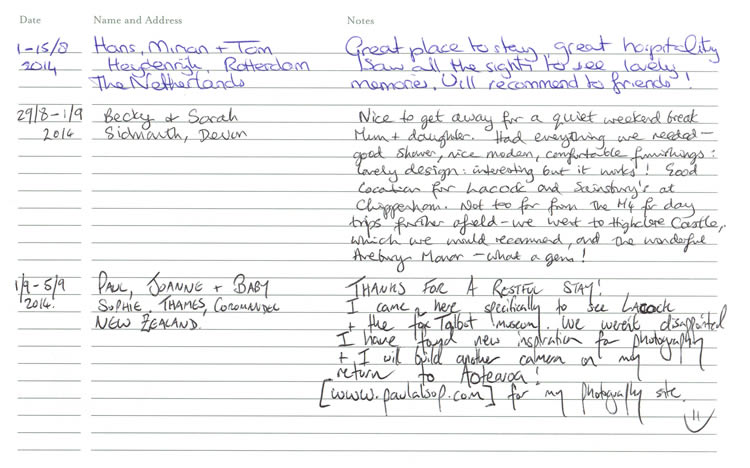 Date Name and Address Notes
1-15/8 Hans, Minan + Tom Great place to stay, great hospitality
2014 Heydenrijk, Rotterdam Saw all the sights to see lovely
The Netherlands memories. Will recommend to friends!
29/8-1/9 Becky & Sarah Nice to get away for a quiet weekend break
2014 Sidmouth, Devon Mum + daughter. Had everything we needed –
good shower, nice modern, comfortable furnishings:
lovely design: interesting but it works! Good
location for Lacock and Sainsbury's at
Chippenham. Not too far from the M4 for day
trips further afield – we went to Highclere Castle,
which we would recommend, and the wonderful
Avebury Manor – what a gem!
1/9-5/9 PAUL, JOANNE + BABY THANKS FOR A RESTFUL STAY!
2014. SOPHIE. THAMES, COROMANDEL I came here specifically to see LACOCK
NEW ZEALAND. + the Fox Talbot museum. We weren't disappointed
I have found new inspiration for photography
+ I will build another camera on my
return to Aotearoa!
[www.paulalsop.com] for my photography site.